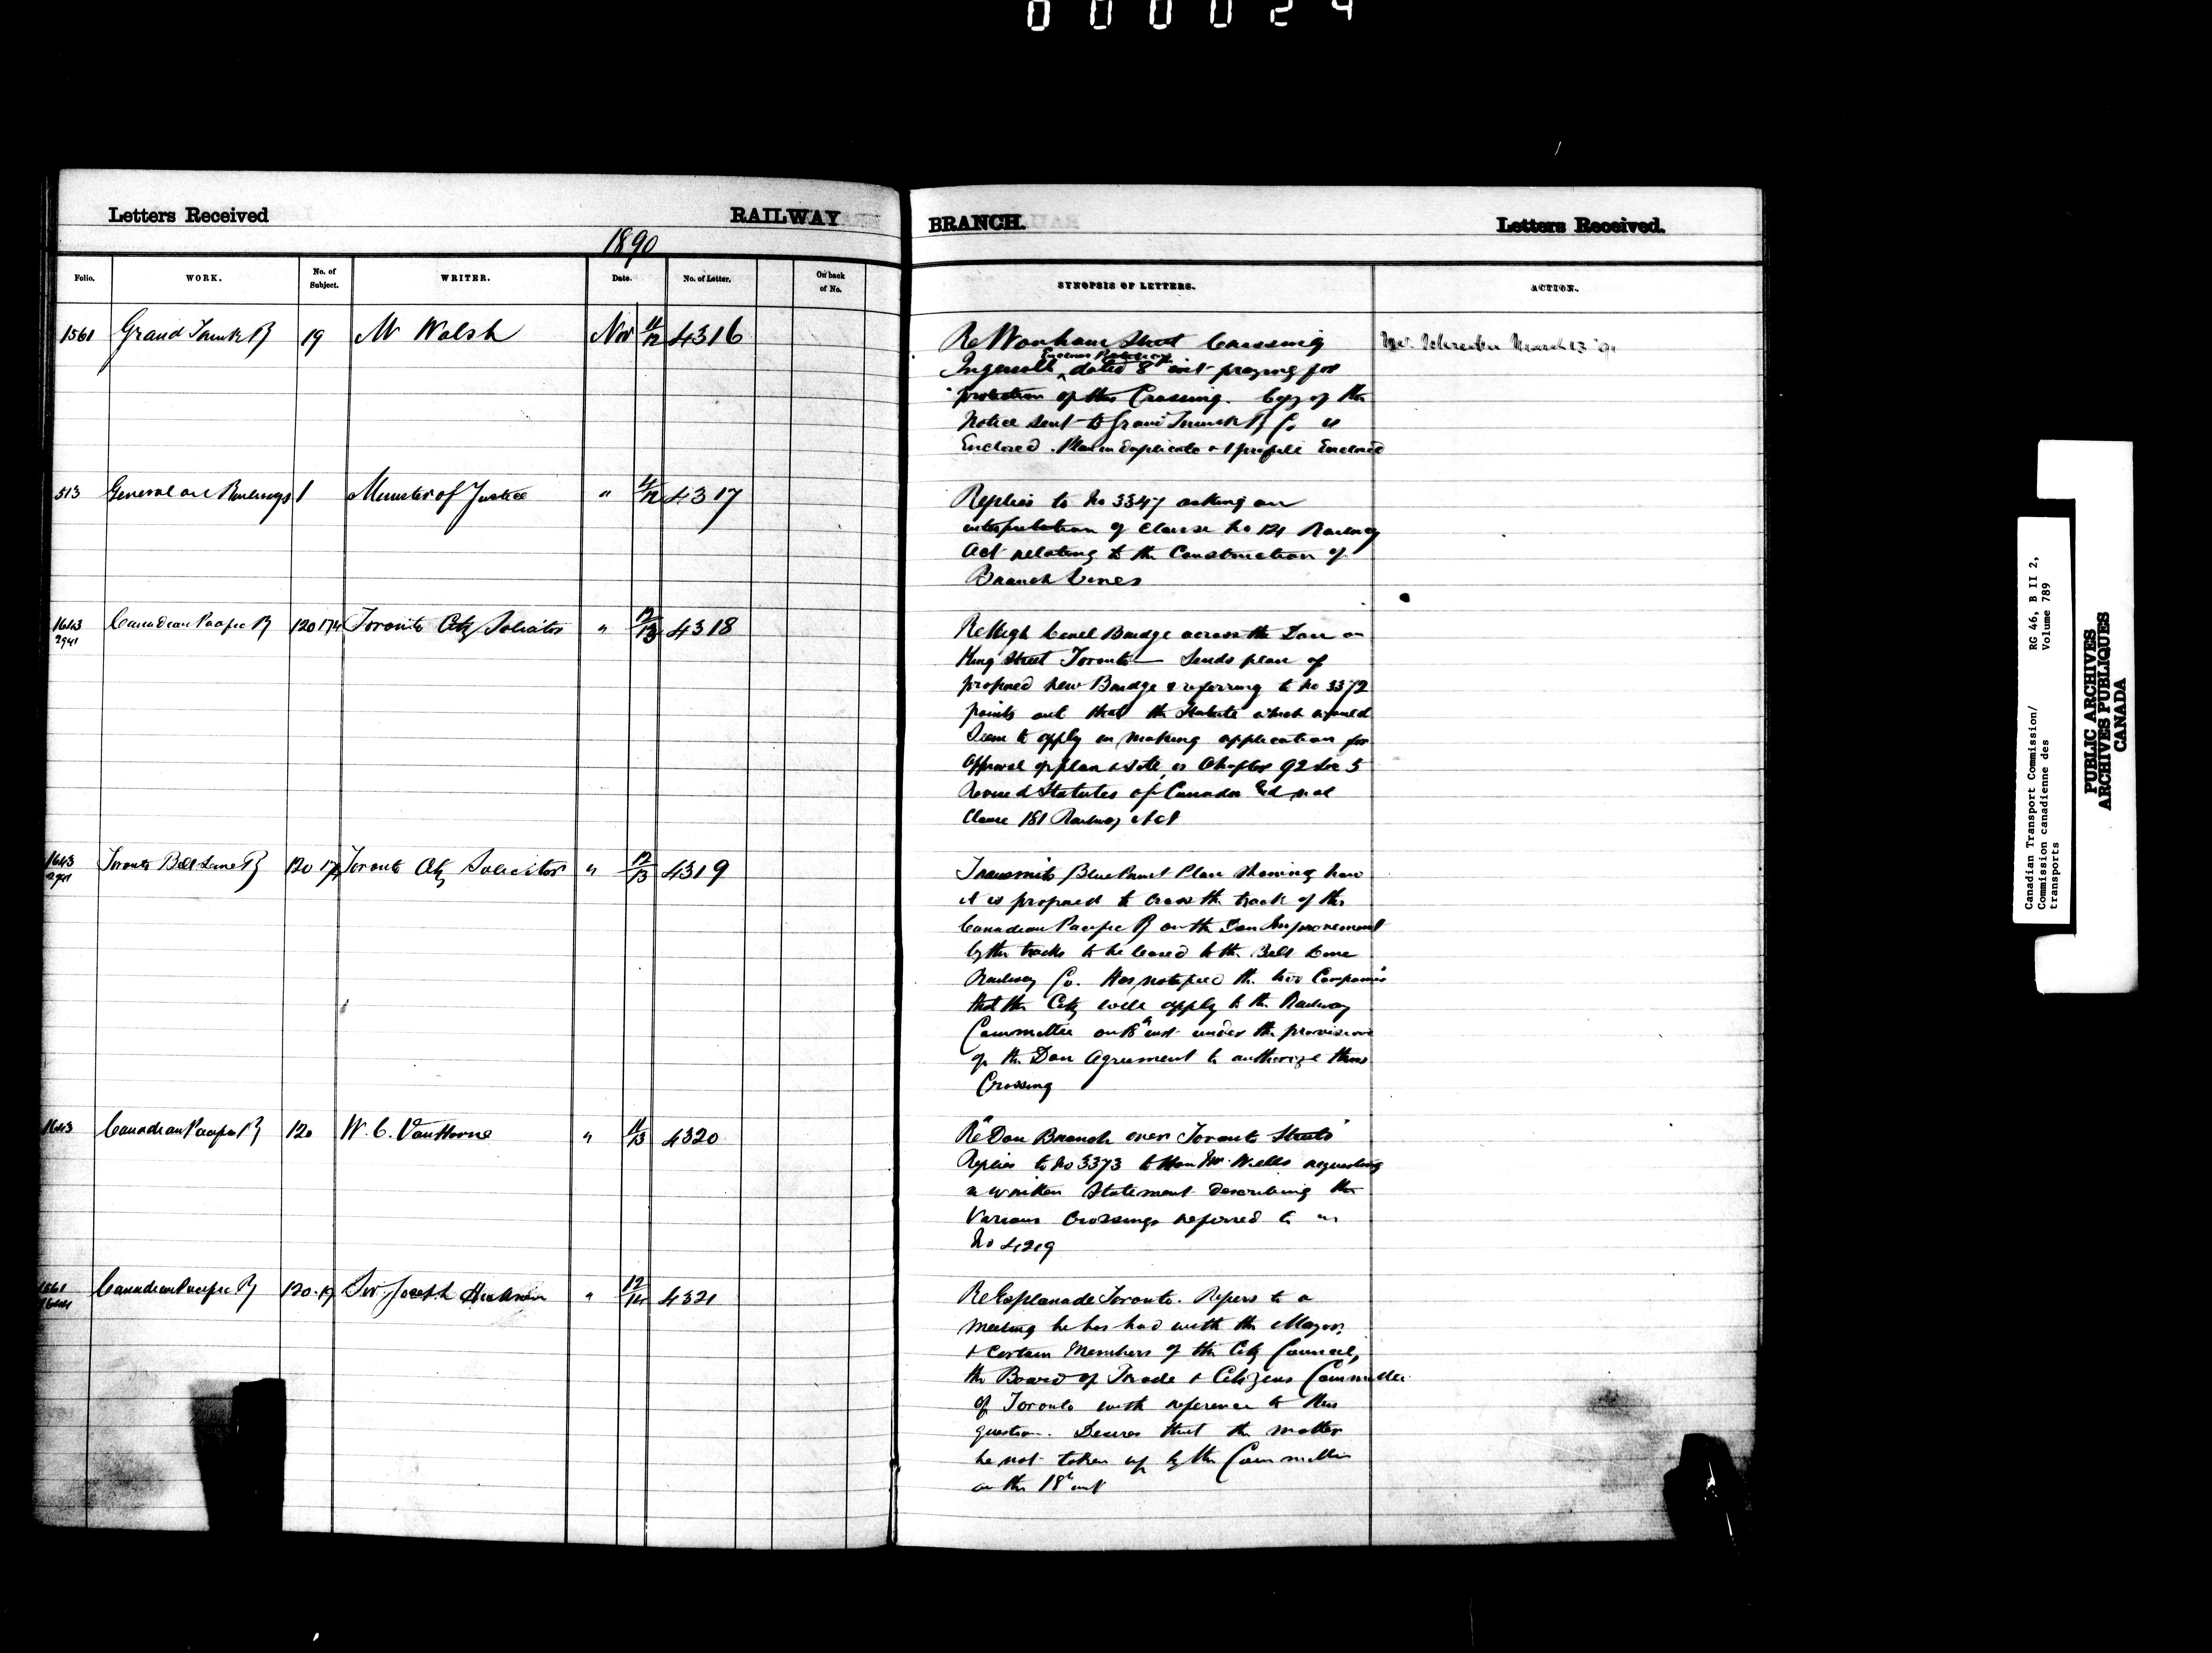 000024
Letters Received
RAILWAY
BRANCH.
Letters Received.
1890
Folio.
WORK.
No. of Subject.
WRITER.
Date.
No. of Letter.
On back of No.
SYNOPSIS OF LETTERS.
ACTION.
1561 Grand Trunk Ry 19 M Walsh Nov 11/12 4316
Re Wonham Street Crossing
Encloses Petition
Ingersoll dated 8th inst praying for
protection of this Crossing. Copy of the
Notice sent to Grand Trunk Ry Co is
Enclosed. Plan in duplicate & 1 profile Enclosed
Mr. Schreiber March 23 '91
513 General on Railways 1 Minister of Justice " 11/12 4317
Replies to No 3347 asking an
interpretation of Clause No 121 Railway
Act relating to the Construction of
Branch Lines
1643 2941 Canadian Pacific Ry 120 174 Toronto City Solicitor " 12/13 4318
Re High Level Bridge across the Don on
King Street Toronto — Sends plan of
proposed new Bridge & referring to No 3372
points out that the Statute which would
Seem to apply in making application for
Approval of plan & site, is Chapter 92 Sec 5
Revised Statutes of Canada and not
Clause 181 Railway Act
1643 2941 Toronto Belt Line Ry 120 174 Toronto City Solicitor " 12/13 4319
Transmits Blue Print Plan showing how
it is proposed to cross the track of the
Canadian Pacific Ry on the Don Improvement
by the tracks to be leased to the Belt Line
Railway Co. Has notified the two Companies
that the City will apply to the Railway
Committee on 18th inst under the provisions
of the Don Agreement to authorize this
Crossing
1643 Canadian Pacific Ry 120 W. C. Van Horne " 11/13 4320
Re "Don Branch over Toronto Streets"
Replies to No 3373 to Hon Mr. Wells requesting
a written Statement describing the
Various Crossings referred to in
No 4219
1561 1644 Canadian Pacific Ry 120.19 Sir Joseph Hickson " 12/14 4321
Re Esplanade Toronto. Refers to a
meeting he has had with the Mayor,
& Certain Members of the City Council,
the Board of Trade & Citizens Committee
of Toronto with reference to this
question. Desires that the matter
be not taken up by the Committee
on the 18th inst
Canadian Transport Commission/
Commission canadienne des
transports
RG 46, B II 2,
Volume 789
PUBLIC ARCHIVES
ARCHIVES PUBLIQUES
CANADA